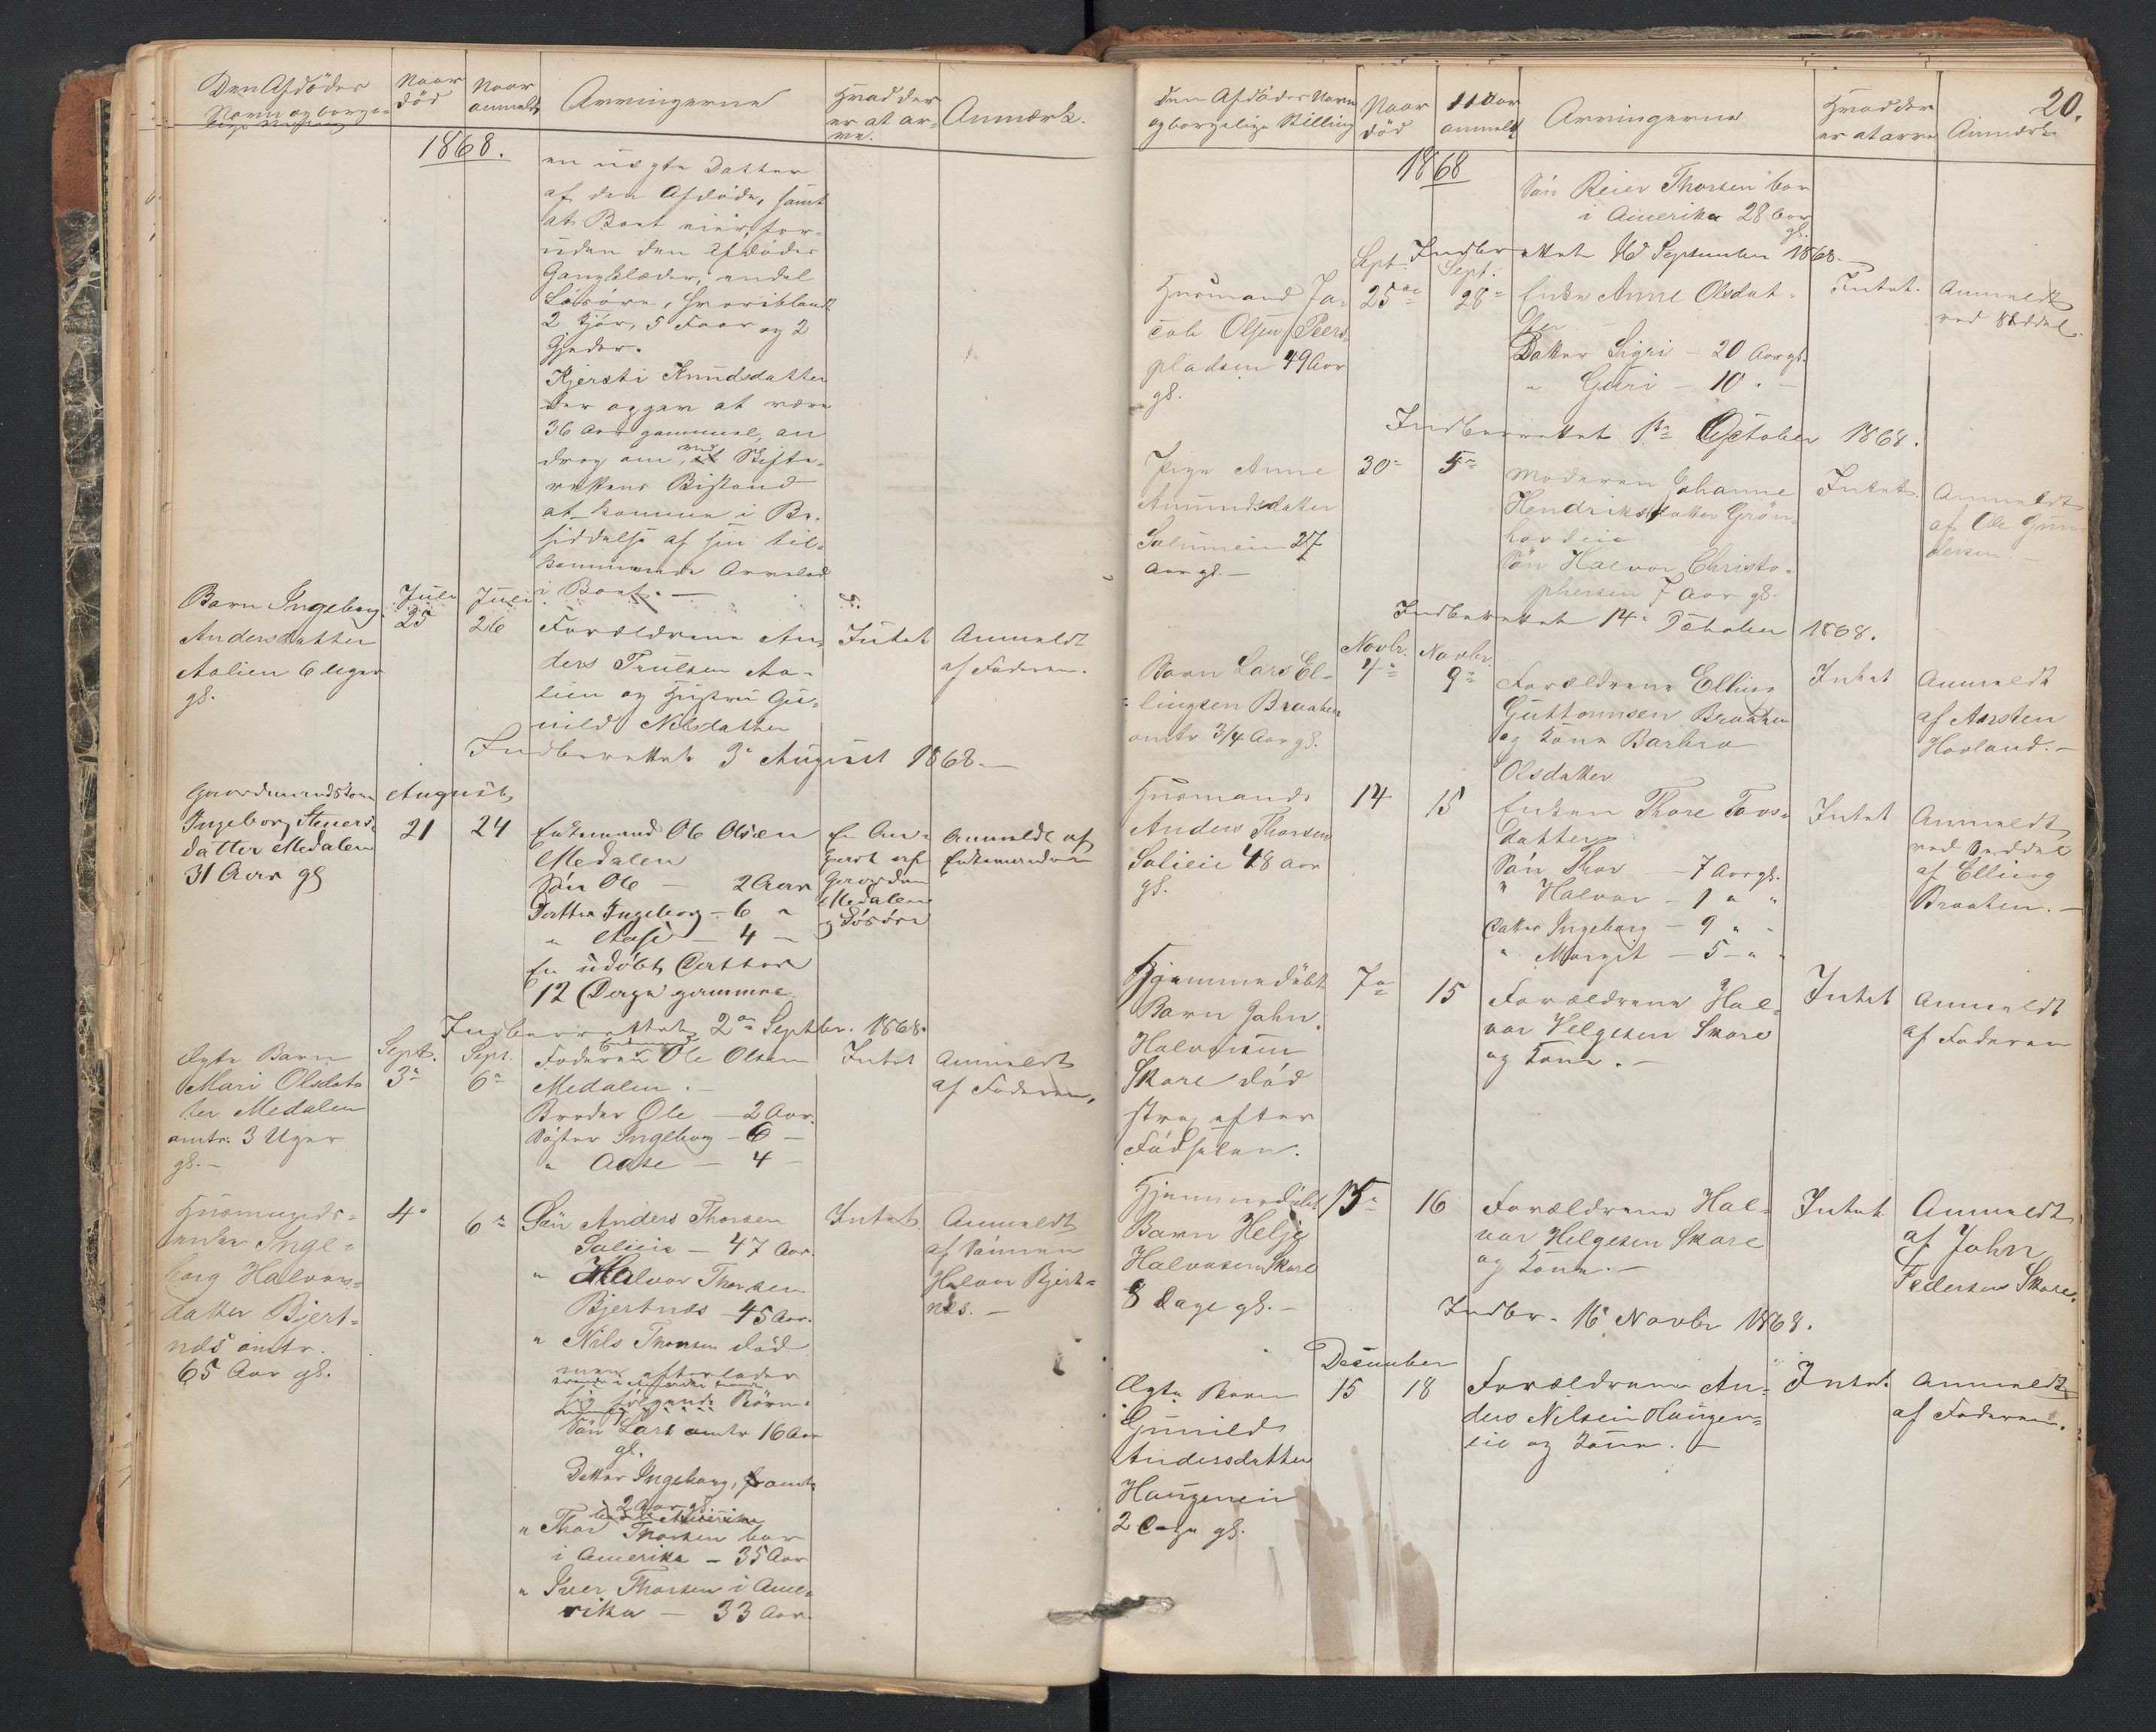 Den Afdödes
Navn og borger-
lige Stilling
Naar
död
Naar
anmeldt
Arvingerne
Hvad der
er at ar-
ve.
Anmærk.
1868.
en uægte Datter
af den Afdöde, samt
at Boet eier, for-
uden den Afdödes
Gangklæder, endel
Lösöre, hvoriblandt
2 Kjör, 5 Faar og 2
Gjeder.
Kjersti Knudsdatter
der opgav at være
36 Aar gammel, an
drog om, ved Skifte-
rettens Bistand
at komme i Be-
siddelse af sin til-
kommende Arvelod
i Boet. —
Barn Ingeborg
Andersdatter
Aalien 6 Uger
gl.
Juli
25
Juli
26
Forældrene An-
ders Trulsen Aa-
lien og Hustru Gu-
nild Nilsdatter
Intet
Anmeldt
af Faderen.
Indberettet 3' August 1868. —
Gaardmandskone
Ingeborg Steners-
datter Medalen
31 Aar gl
August
21
24
Enkemand Ole Olsen
Medalen
Sön Ole — 2 Aar
Datter Ingeborg — 6 "
" Aase — 4 —
En udöbt Datter
12 Dage gammel
En An-
part af
Gaarden
Medalen
og Lösöre
Anmeldt af
Enkemanden
Indberettet 2den Septbr. 1868.
Ægte Barn
Mari Olsdat-
ter Medalen
omtr. 3 Uger
gl. —
Sept.
3"
Sept.
6"
Faderen Enkemand Ole Olsen
Medalen. —
Broder Ole — 2 Aar.
Söster Ingeborg — 6 —
" Aase — 4 —
Intet
Anmeldt
af Faderen,
Husmands-
enke Inge-
borg Halvors-
datter Bjert-
næs omtr.
65 Aar gl.
4"
6"
Sön Anders Thorsen
Salieie — 47 Aar.
" Halvor Thorsen
Bjertnæs — 45 Aar.
" Nils Thorsen död
men efterlader
sig fölgende Börn:
Sön Lars omtr 16 Aar
gl.
Datter Ingeborg, omtr
2 Aar gl.
" Thor Thorsen bor
i Amerika — 35 Aar
" Iver Thorsen i Ame-
rika — 33 Aar.
Intet.
Anmeldt
af Sönnen
Halvor Bjert-
næs. —
20.
Den Afdödes Navn
og borgelige Stilling
Naar
död
Naar
anmeldt
Arvingerne
Hvad der
er at arve
Anmærk
1868
Sön Reier Thorsen bor
i Amerika 28 Aar
gl.
Indberettet September 1868. —
Husmand Ja-
cob Olsen Peers-
pladsen 49 Aar
gl.
Sept.
25de
Sept.
28"
Enke Anne Olsdat-
ter
Datter Sigri — 20 Aar gl.
" Guri — 10 " —
Intet.
Anmeldt
ved Seddel.
Indberettet 1ste October 1868.
Pige Anne
Amundsdatter
27
Aar gl. —
30"
5"
Moderen Johanne
Hendriksdatter Grön-
hovdeie
Sön Halvor Christo-
phersen 7 Aar gl.
Intet.
Anmeldt
af Ole Gun-
dersen. —
Indberettet 14" October 1868.
Barn Lars El-
lingsen Braaten
omtr. 3/4 Aar gl.
Novbr.
4"
Novbr.
9"
Forældrene Elling
Guttormsen Braaten
og Kone Barbra
Olsdatter
Intet
Anmeldt
af Aarsten
Hovland. —
Husmand
Anders Thorsen
Salieie 48 Aar
gl.
14
15
Enken Thore Tors-
datter
Sön Thor — 7 Aar gl.
" Halvor — 1 " "
Datter Ingeborg — 9 " "
" Margit — 5 — " "
Intet
Anmeldt
ved Seddel
af Elling
Braaten. —
Hjemmedöbt
Barn John
Halvorsen
Skare död
strax efter
Födselen.
7de
15
Forældrene Hal-
vor Helgesen Skare
og Kone. —
Intet
Anmeldt
af Faderen
Hjemmedöbt
Barn Helje
Halvorsen Skare
8 Dage gl. —
15"
16
Forældrene Hal-
vor Helgesen Skare
og Kone. —
Intet
Anmeldt
af John
Pedersen Skare.
Indbr. 16' Novbr 1868.
Ægte Barn
Gunild
Andersdatter
Haugeneie
2 Dage gl.
December
15
18
Forældrene An-
ders Nilsen Haugen-
eie og Kone. —
Intet.
Anmeldt
af Faderen.